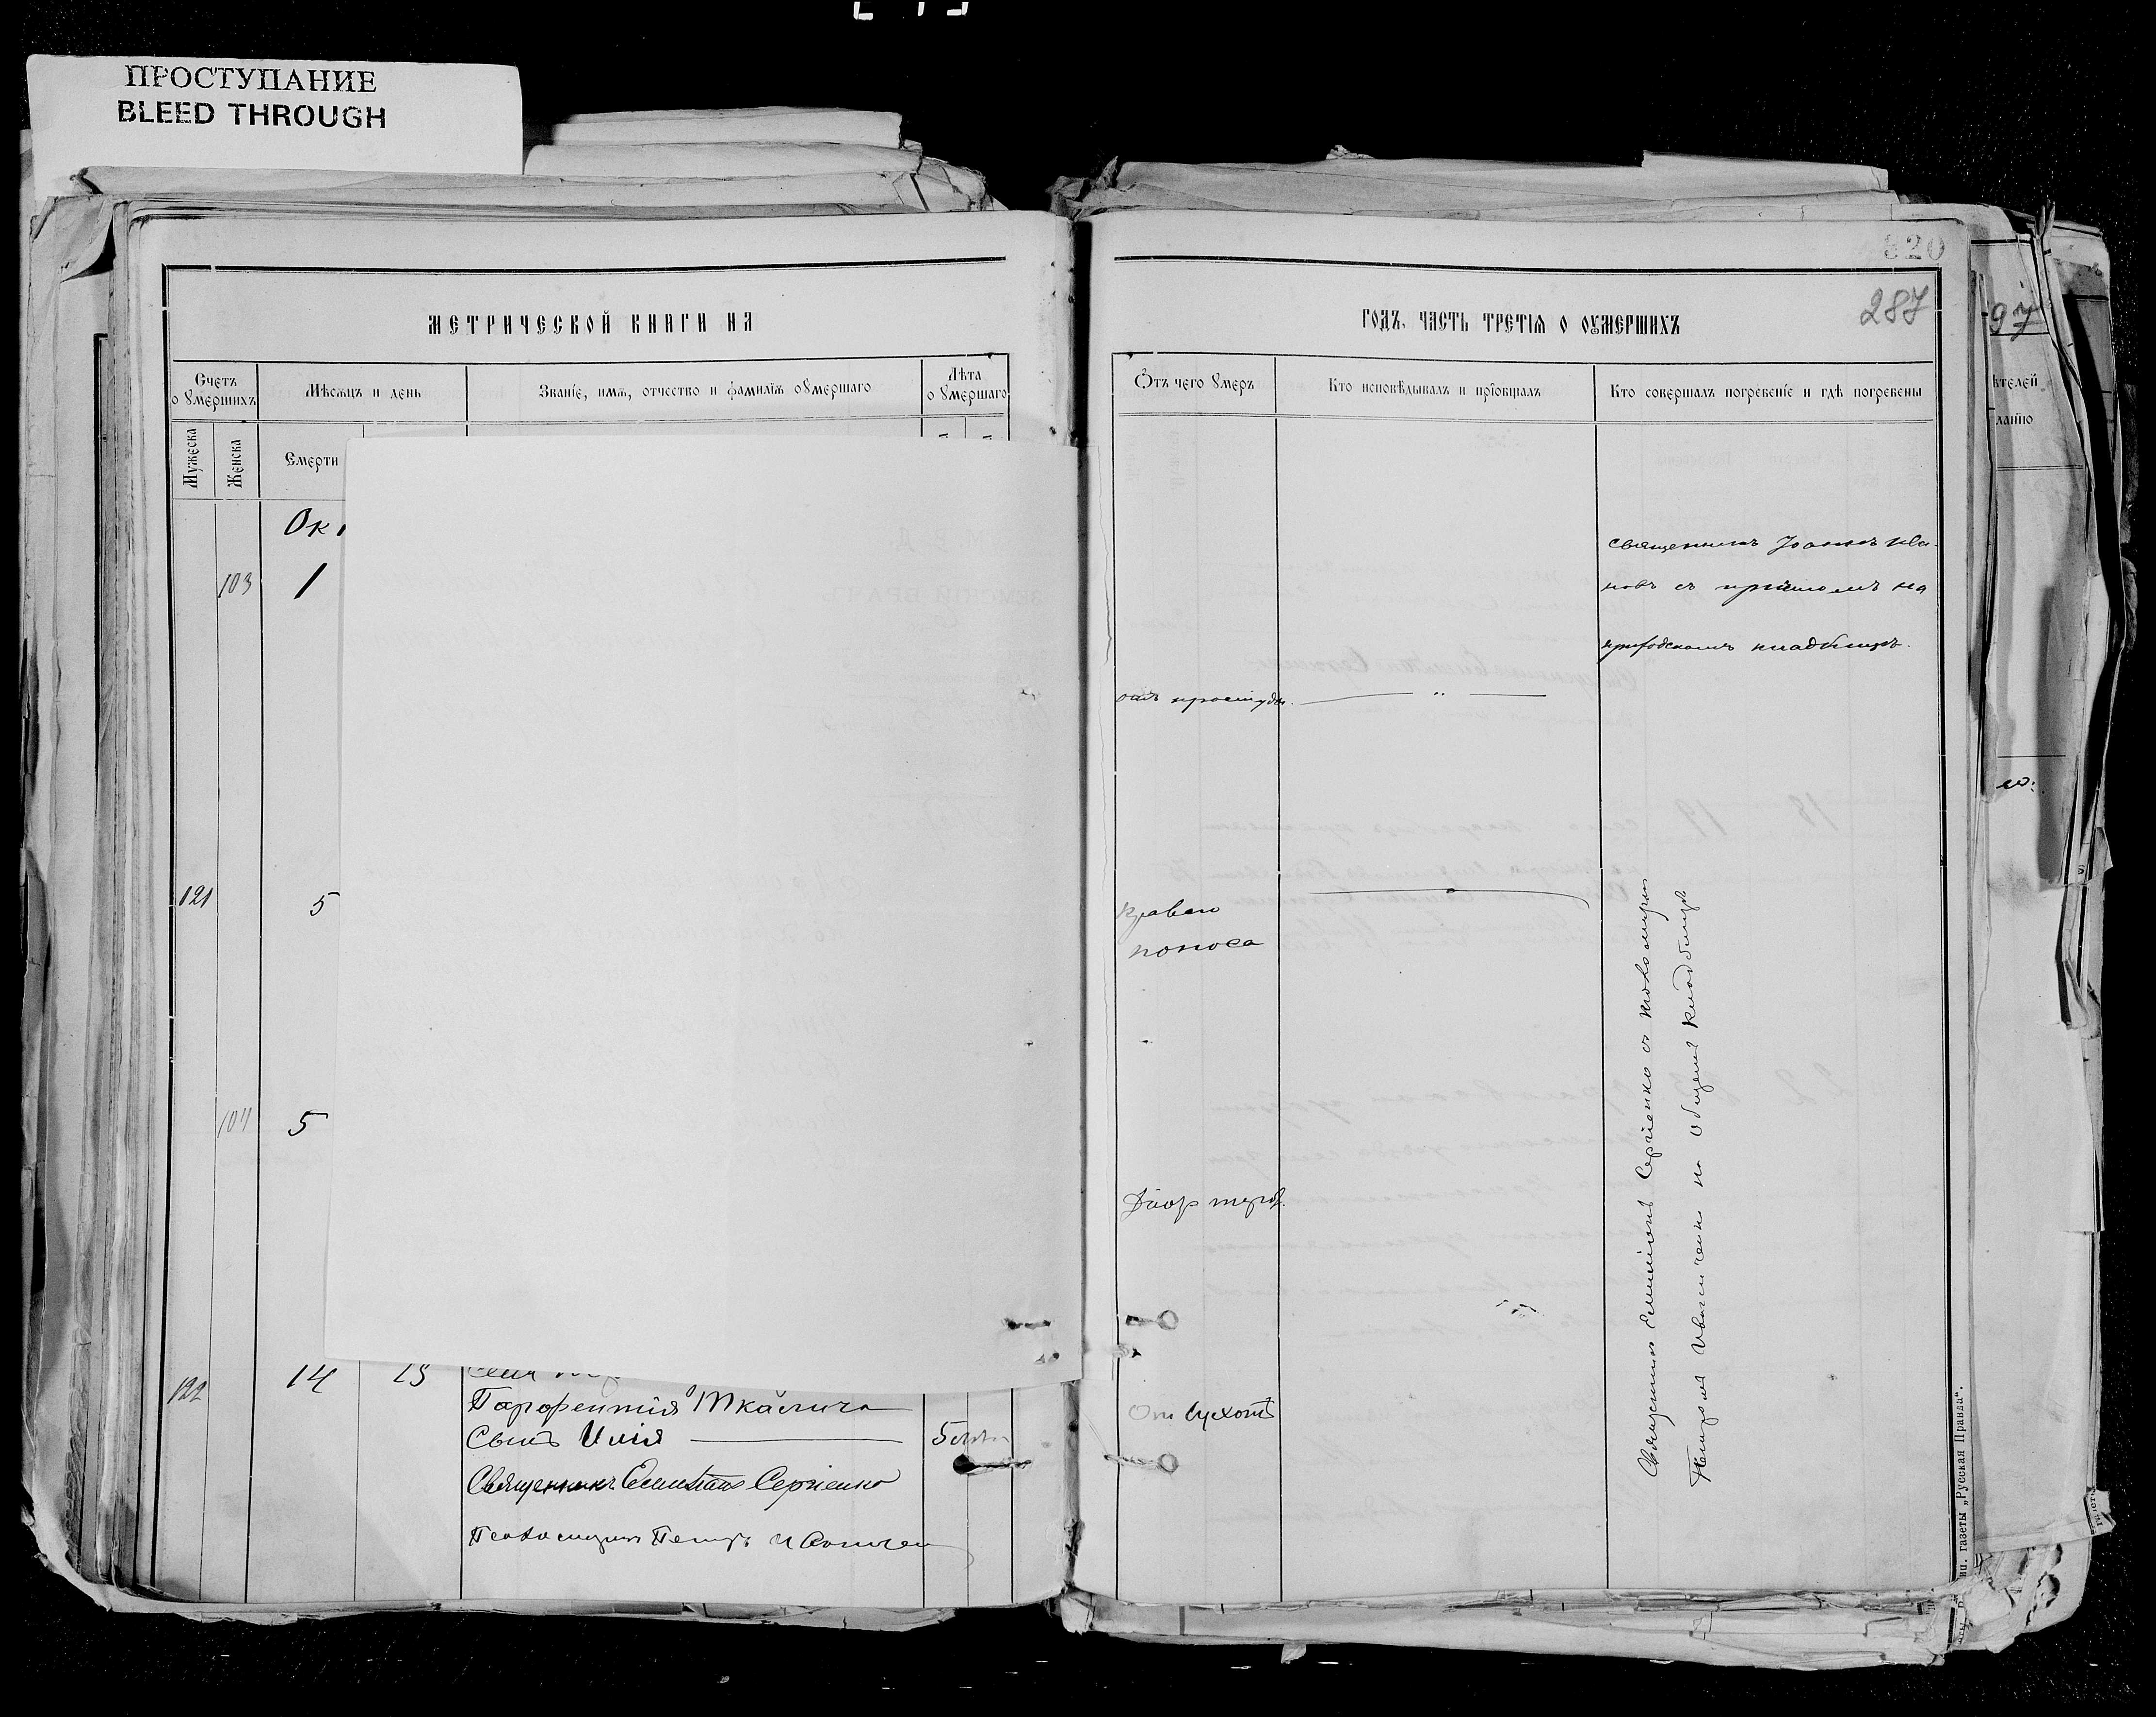 ПРОСТУПАНИЕ
BLEED THROUGH
МЕТРИЧЕСКОЙ КНИГИ НА
Счетъ о умершихъ
Мѣсяцъ и день
Званіе, имя, отчество и фамилія умершаго
Лѣта умершаго
Мужеска
Женска
Смерти
Ок
103 1
121 5
104 5
122 14 15
Парфентія Ткалича
Сынъ Илія 5
Священникъ Емиліанъ Сергіенко
Псаломщик Петръ
320
287
ГОДЪ, ЧАСТЬ ТРЕТІЯ О УМЕРШИХЪ
Отъ чего умеръ
Кто исповѣдывалъ и пріобщалъ
Кто совершалъ погребеніе и гдѣ погребены
священникъ Іоаннъ Ива-
новъ съ причтомъ на
приходскомъ кладбищѣ.
отъ простуды. — " —
Кравого
поноса
От сухотъ
Священник Емиліанъ Сергіенко съ псаломщиком
Петром на общем кладбищѣ
97
ѣтелей
ланію
иц. газеты „Русская Правда“.